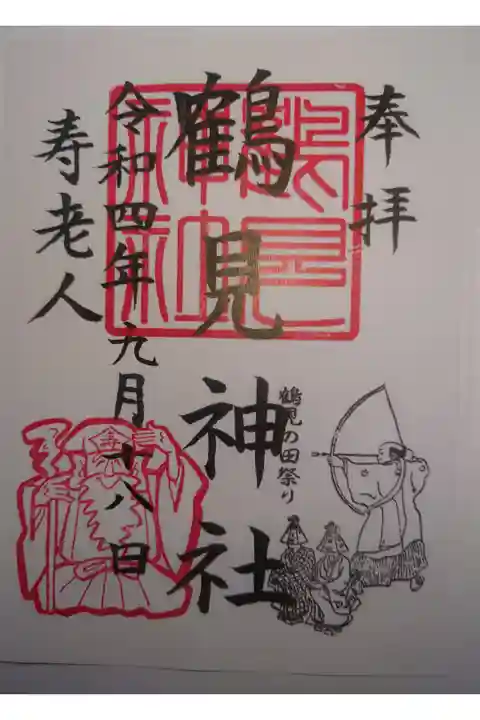 奉拝
鶴見神社
鶴見の田祭り
令和四年九月十八日
寿老人